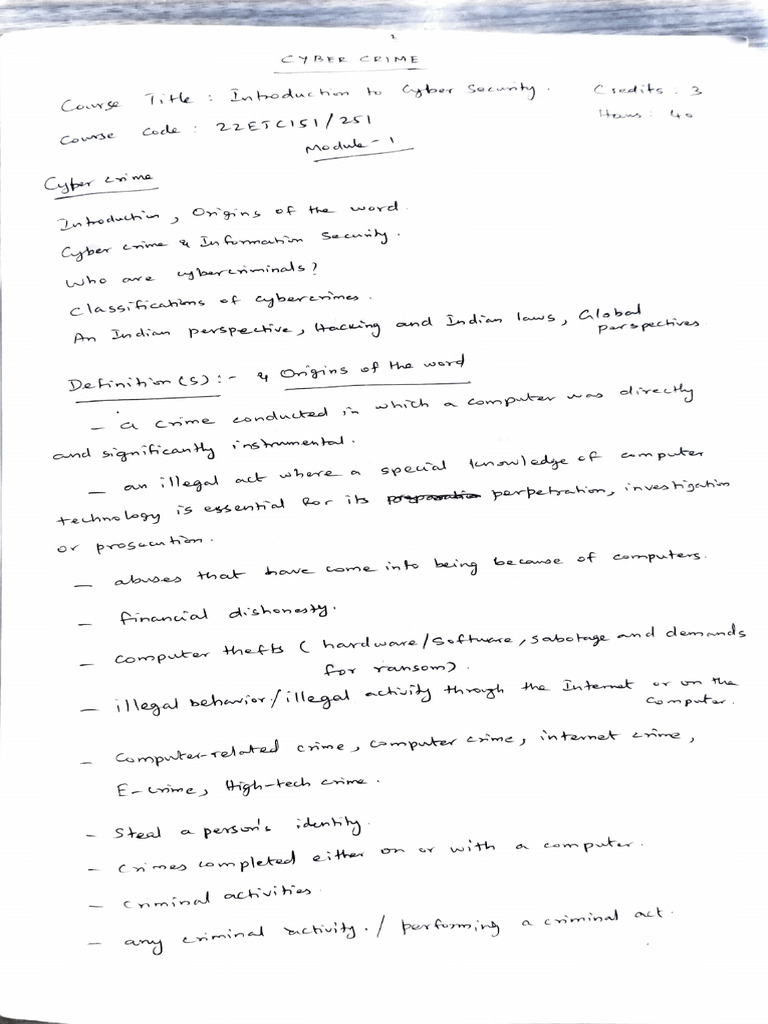 CYBER CRIME
Course Title : Introduction to Cyber Security. Credits : 3
Course Code : 22ETC151/251 Hours : 40
Module - 1
Cyber crime
Introduction, Origins of the word.
Cyber crime & Information Security.
Who are cybercriminals?
Classifications of cybercrimes.
An Indian perspective, Hacking and Indian laws, Global
perspectives
Definition(s) :- & Origins of the word
- a crime conducted in which a computer was directly
and significantly instrumental.
- an illegal act where a special knowledge of computer
technology is essential for its perpetration, investigation
or prosecution.
- abuses that have come into being because of computers.
- financial dishonesty.
- computer thefts ( hardware/software, sabotage and demands
for ransom).
- illegal behavior/illegal activity through the Internet or on the
computer.
- Computer-related crime, computer crime, internet crime,
E-crime, High-tech crime.
- Steal a person's identity.
- Crimes completed either on or with a computer.
- Criminal activities.
- any criminal activity. / performing a criminal act.